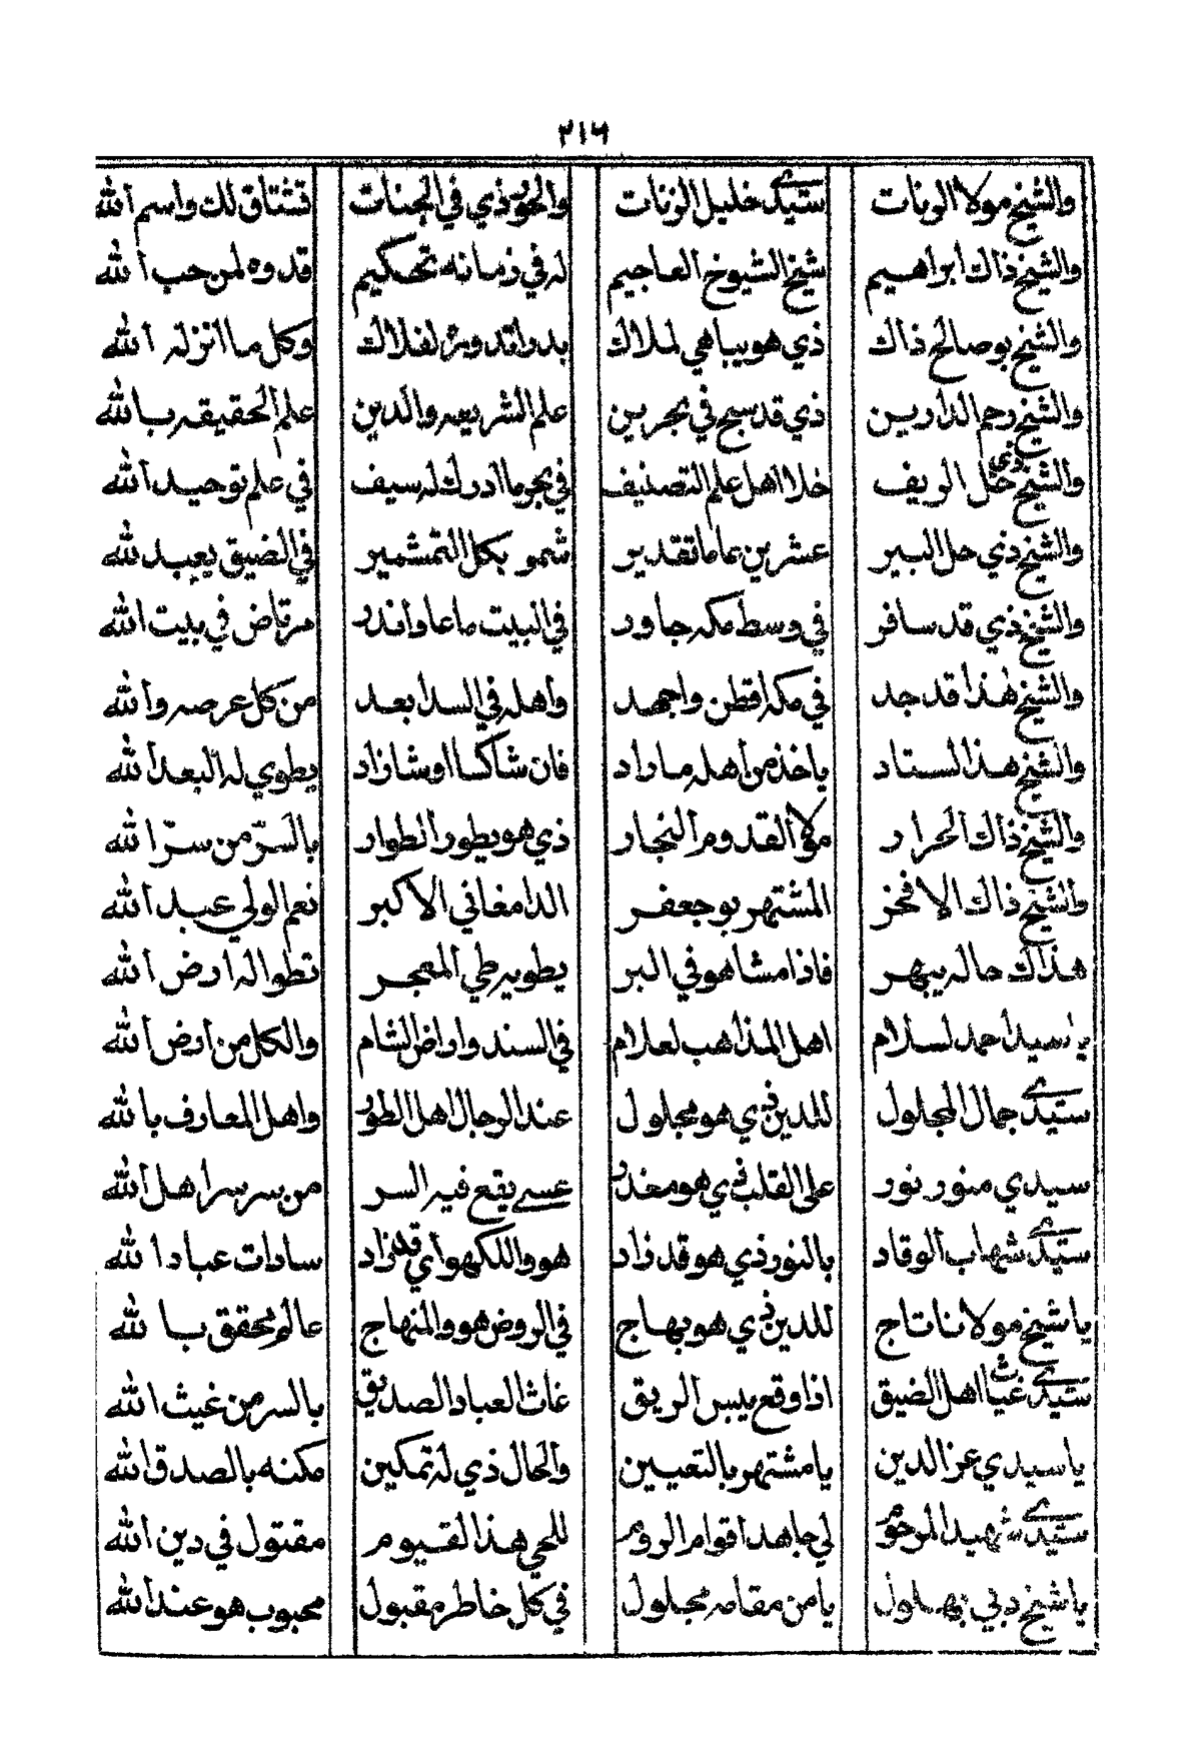 ٢١٦
والشيخ مولانا الوناث سيدي خليل الزنات والحور ذي في الجنات تشتاق لك واسم الله
والشيخ ذاك ابراهيم شيخ الشيوخ العاجيم له في زمانه تحكيم قدوه لمن حب الله
والشيخ بو صالح ذاك ذي هو يباهي لملاك بدواتدويرلفلاك وكل ما انزله الله
والشيخ رحم الدارين ذي قد سبح في بحرين علم الشريعه والدين علم الحقيقه بالله
والشيخ ذي حل الريف خلا اهل علم التصنيف في بحر ما ادرك له سيف في علم توحيد الله
والشيخ ذي حل البير عشرين عاما تقدير شمو بكل التمشمير في الضيق يعبد لله
والشيخ ذي قد سافر في وسط مكه جاور في البيت ما عاد اندر مرتاض في بيت الله
والشيخ هذا قد جد في مكه اقطن واجهد واهله في السد ابعد من كل عرصه والله
والشيخ هذا الستاد ياخذ من اهله ما راد فان شاكسا او شازاد يطوي له البعد الله
والشيخ ذاك الحرار مولا القدوم النجار ذي هو يطور الطوار بالسر من سر الله
والشيخ ذاك الافخر المشتهر بو جعفر الدامغاني الاكبر نعم الولي عبد الله
هذاك حاله يبهر فاذا مشا هو في البر يطويه طي المعجر تطواله ارض الله
يا سيد احمد لسلام اهل المذاهب لعلام في السند واراض الشام والكل من ارض الله
سيدي جمال المجلول للدين ذي هو مجلول عند الرجال اهل الطور واهل المعارف بالله
سيدي منور نور على القلب ذي هو مغدر عسى يقع فيه السر من سر سر اهل الله
سيدي شهاب الوقاد بالنور ذي هو قد زاد هو واللكهوا ي قد زاد سادات عباد الله
يا شيخ مولانا تاج للدين ذي هو بهاج في الروض هو والمنهاج عالم محقق بالله
سيدي غياث اهل الضيق اذا وقع ييبس الريق غاث العباد الصديق بالسر من غيث الله
يا سيدي عز الدين يا مشتهر بالتعيين والحال ذي له تمكين مكنه بالصدق الله
سيدي شهيد المرحوم لي جاهد اقوام الروم للحي هذا القيوم مقتول في دين الله
يا شيخ دبي بهلول يا من مقامه مجلول في كل خاطر مقبول محبوب هو عند الله